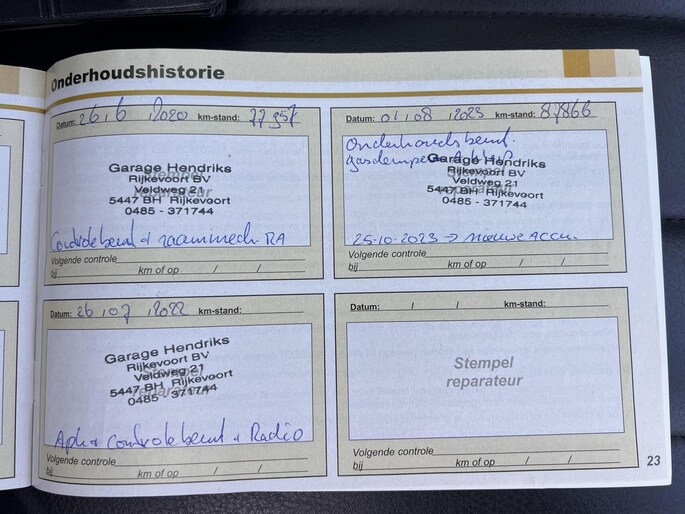 Onderhoudshistorie
Datum: 26,6 ,2020 km-stand: 77957
Stempel
reparateur
Garage Hendriks
Rijkevoort BV
Veldweg 21
5447 BH Rijkevoort
0485 - 371744
Controlebeurt + raammech. RA
Volgende controle
bij km of op / /
Datum: 01,08 ,2023 km-stand: 87866
Onderhoudsbeurt.
gasdempers
Stempel
reparateur
Garage Hendriks
Rijkevoort BV
Veldweg 21
5447 BH Rijkevoort
0485 - 371744
25-10-2023 → nieuwe accu.
Volgende controle
bij km of op / /
Datum: 26,07 ,2022 km-stand:
Stempel
reparateur
Garage Hendriks
Rijkevoort BV
Veldweg 21
5447 BH Rijkevoort
0485 - 371744
Apk + controlebeurt + Radio
Volgende controle
bij km of op / /
Datum: / / km-stand:
Stempel
reparateur
Volgende controle
bij km of op / /
23